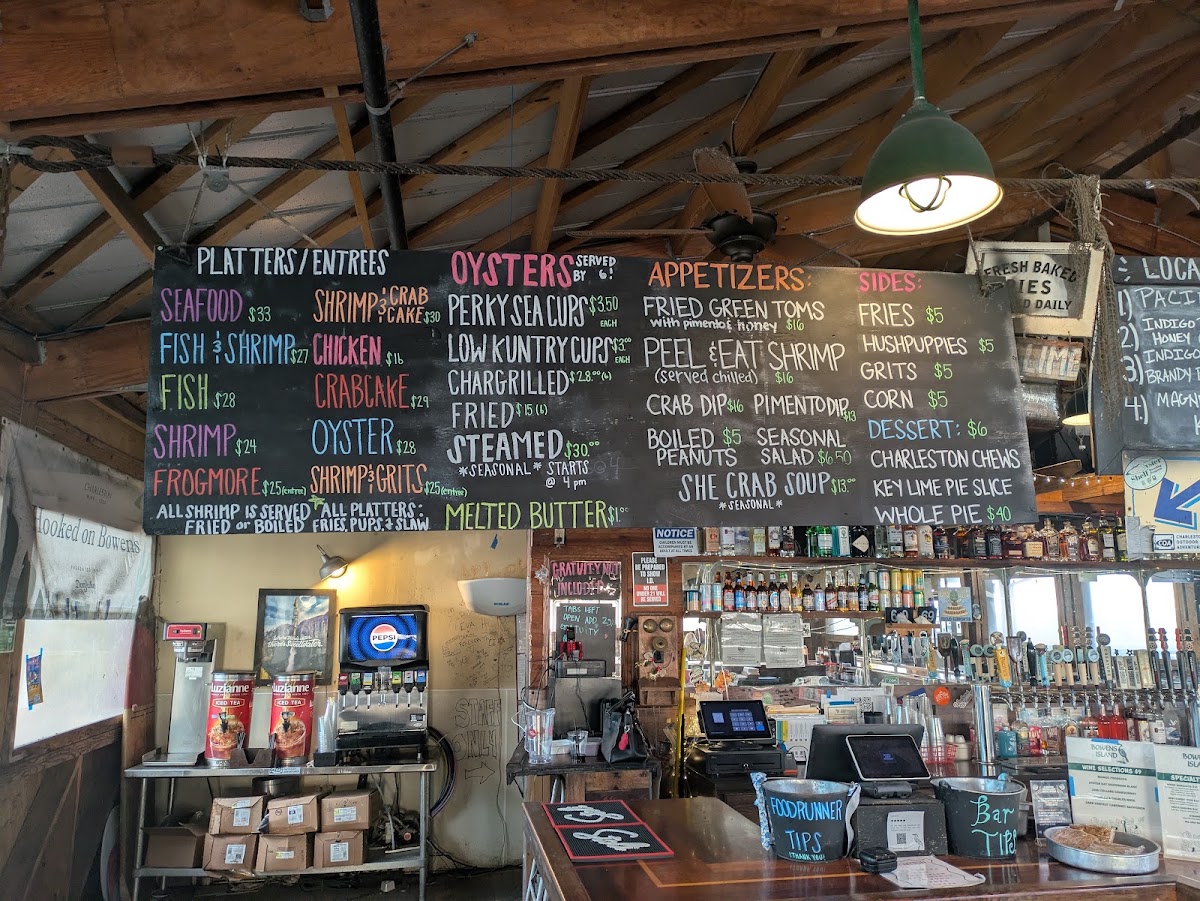 PLATTERS/ENTREES
SEAFOOD $33
FISH & SHRIMP $27
FISH $28
SHRIMP $24
FROGMORE $25 (entree)
SHRIMP & CRAB CAKE $30
CHICKEN $16
CRABCAKE $29
OYSTER $28
SHRIMP & GRITS $25 (entree)
ALL SHRIMP IS SERVED
FRIED or BOILED
*ALL PLATTERS:
FRIES, PUPS, & SLAW
OYSTERS SERVED BY 6!
PERKY SEA CUPS $3.50 EACH
LOW KUNTRY CUPS $3.00 EACH
CHARGRILLED $28.00 (6)
FRIED $15 (6)
STEAMED $30.00
*SEASONAL* STARTS
@ 4 pm
MELTED BUTTER $1.00
APPETIZERS:
FRIED GREEN TOMS
with pimento & honey $16
PEEL & EAT SHRIMP
(served chilled) $16
CRAB DIP $16 PIMENTO DIP $13
BOILED PEANUTS $5
SEASONAL SALAD $6.50
SHE CRAB SOUP $13.00
*SEASONAL*
SIDES:
FRIES $5
HUSHPUPPIES $5
GRITS $5
CORN $5
DESSERT: $6
CHARLESTON CHEWS
KEY LIME PIE SLICE
WHOLE PIE $40
FRESH BAKED
PIES
DAILY
LOCA
1) PACI
2) INDIGO
HONEY
3) INDIGO
BRANDY
4) MAGN
Hooked on Bowens
NOTICE
CHILDREN MUST BE
ACCOMPANIED BY AN
ADULT AT ALL TIMES
PLEASE
BE PREPARED
TO SHOW
I.D.
NO ONE
UNDER 21 WILL
BE SERVED
GRATUITY NOT
INCLUDED
TABS LEFT
OPEN ADD
KOA
pepsi
Luzianne
ICED TEA
Luzianne
ICED TEA
STAFF
ONLY
FOODRUNNER
TIPS
THANK YOU!
Bar
TIPS
BOWENS
ISLAND
WINE SELECTIONS $9
BOWENS
ISLAND
SPECIALT